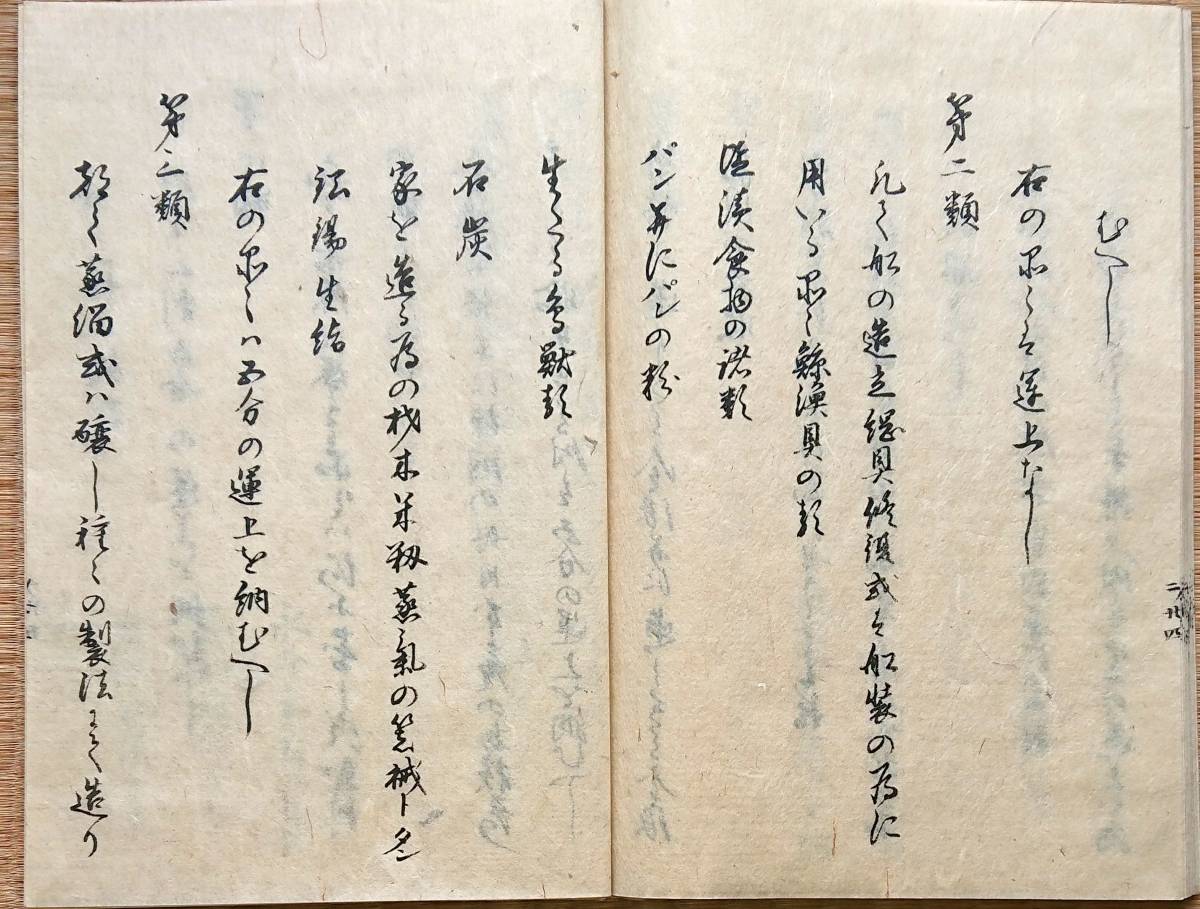 むへし
右の品々は運上なし
第二類
凡て船の造立綱具修復或は船装の為に
用いる品々鯨漁具の類
塩漬食物の諸類
パン并にパンの粉
生たる鳥獣類
石炭
家を造る為の材木米籾蒸氣の器械トタン
鉛錫生絹
右の品々ハ五分の運上を納むへし
第三類
都て蒸溜或ハ醸し種々の製法にて造り